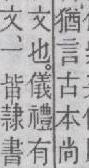 猶言古本尚
文也。儀禮有
文、一皆隸書